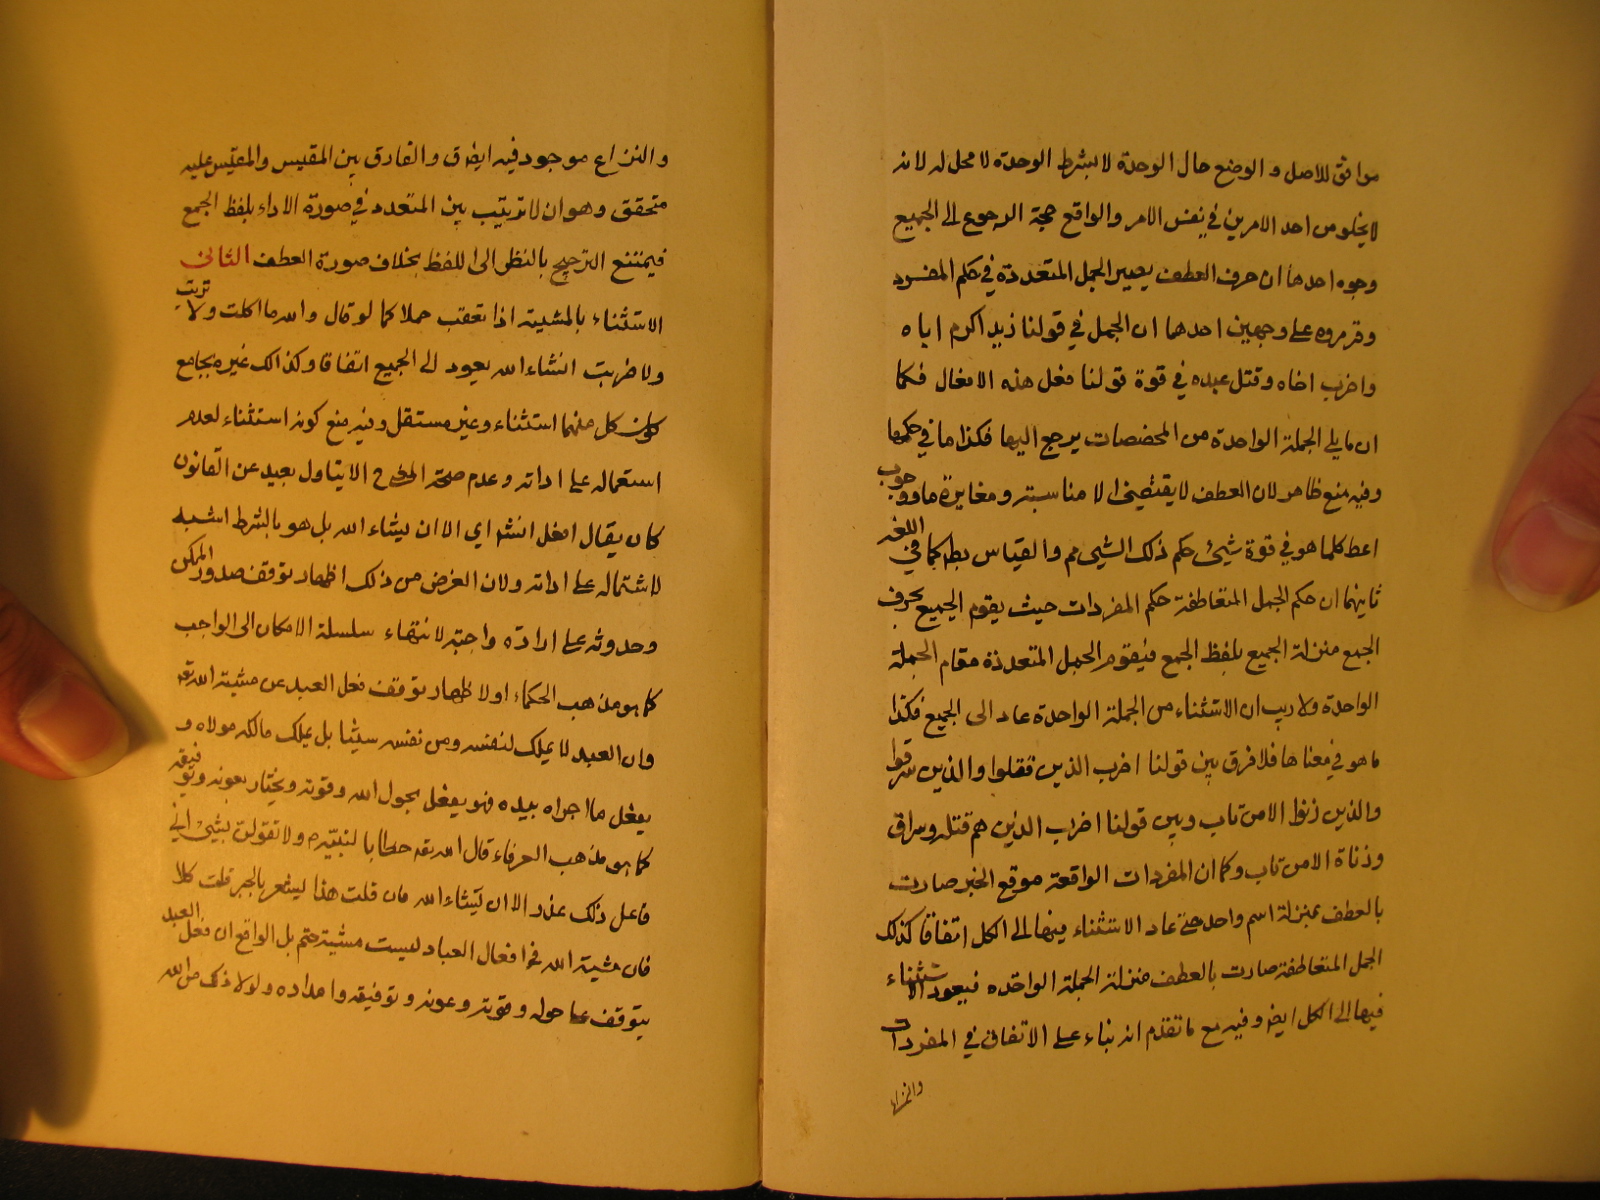 موافق للاصل و الوضع حال الوحدة لا بشرط الوحدة لا محل له لانه
لا يخلو من احد الامرين في نفس الامر والواقع حجة الرجوع الى الجميع
وجوه احدها ان حرف العطف يصير الجمل المتعددة في حكم المفرد
وقرروه على وجهين احدهما ان الجمل في قولنا زيد اكرم اباه
واضرب اخاه وقتل عبده في قوة قولنا فعل هذه الافعال فكما
ان ما يلي الجملة الواحدة من المخصصات يرجع اليها فكذا ما في حكمها
وفيه منع ظاهر لان العطف لا يقتضي الا مناسبة ومغايرة ما ووجوب
اعطا كلما هو في قوة شيئ حكم ذلك الشيئ مم والقياس بط كما في اللغة
ثانيهما ان حكم الجمل المتعاطفة حكم المفردات حيث يقوم الجميع بحرف
الجمع منزلة الجميع بلفظ الجمع فيقوم الجمل المتعددة مقام الجملة
الواحدة ولا ريب ان الاستثناء من الجملة الواحدة عاد الى الجميع فكذا
ما هو في معناها فلا فرق بين قولنا اضرب الذين قتلوا والذين سرقوا
والذين زنوا الا من تاب وبين قولنا اضرب الذين هم قتلة وسراق
وزناة الا من تاب وكما ان المفردات الواقعة موقع الخبر صارت
بالعطف بمنزلة اسم واحد حتى عاد الاستثناء فيها الى الكل اتفاقا كذلك
الجمل المتعاطفة صارت بالعطف منزلة الجملة الواحده فيعود الاستثناء
فيها الى الكل ايضا وفيه مع ما تقدم انه بناء على الاتفاق في المفردات
والنزاع
والنزاع موجود فيه ايضا و الفارق بين المقيس والمقيس عليه
متحقق وهو ان لا ترتيب بين المتعدد في صورة الاداء بلفظ الجمع
فيمتنع الترجيح بالنظر الى اللفظ بخلاف صورة العطف الثاني
الاستثناء بالمشية اذا تعقب جملا كما لو قال والله ما اكلت ولا شربت
ولا ضربت انشاء الله يعود الى الجميع اتفاقا وكذالك غيره بجامع
كون كل منهما استثناء وغير مستقل وفيه منع كونه استثناء لعدم
استعماله على اداته وعدم صحة الا بتاول بعيد عن القانون
كان يقال افعل انشا اي الا ان يشاء الله بل هو بالشرط اشبه
لاشتماله على اداته ولان الغرض من ذلك اظهار توقف صدور الممكن
وحدوثه على ارادة واجبه لانتهاء سلسلة الامكان الى الواجب
كما هو مذهب الحكماء او لاظهار توقف فعل العبد عن مشية الله تعه
وان العبد لا يملك لنفسه ومن نفسه شيئا بل يملك مالكه مولاه و
يفعل ما اجراه بيده فهو يفعل بحول الله وقوته ويختار بعونه وتوفيقه
كما هو مذهب العرفاء قال الله تعه خطابا لنبيه ولا تقولن لشيئ اني
فاعل ذلك غدا الا ان يشاء الله فان قلت هذا يشعر بالجبر قلت كلا
فان مشية الله في افعال العباد ليست مشية حتم بل الواقع ان فعل العبد
يتوقف على حوله وقوته وعونه وتوفيقه وامداده ولولا ذلك من الله